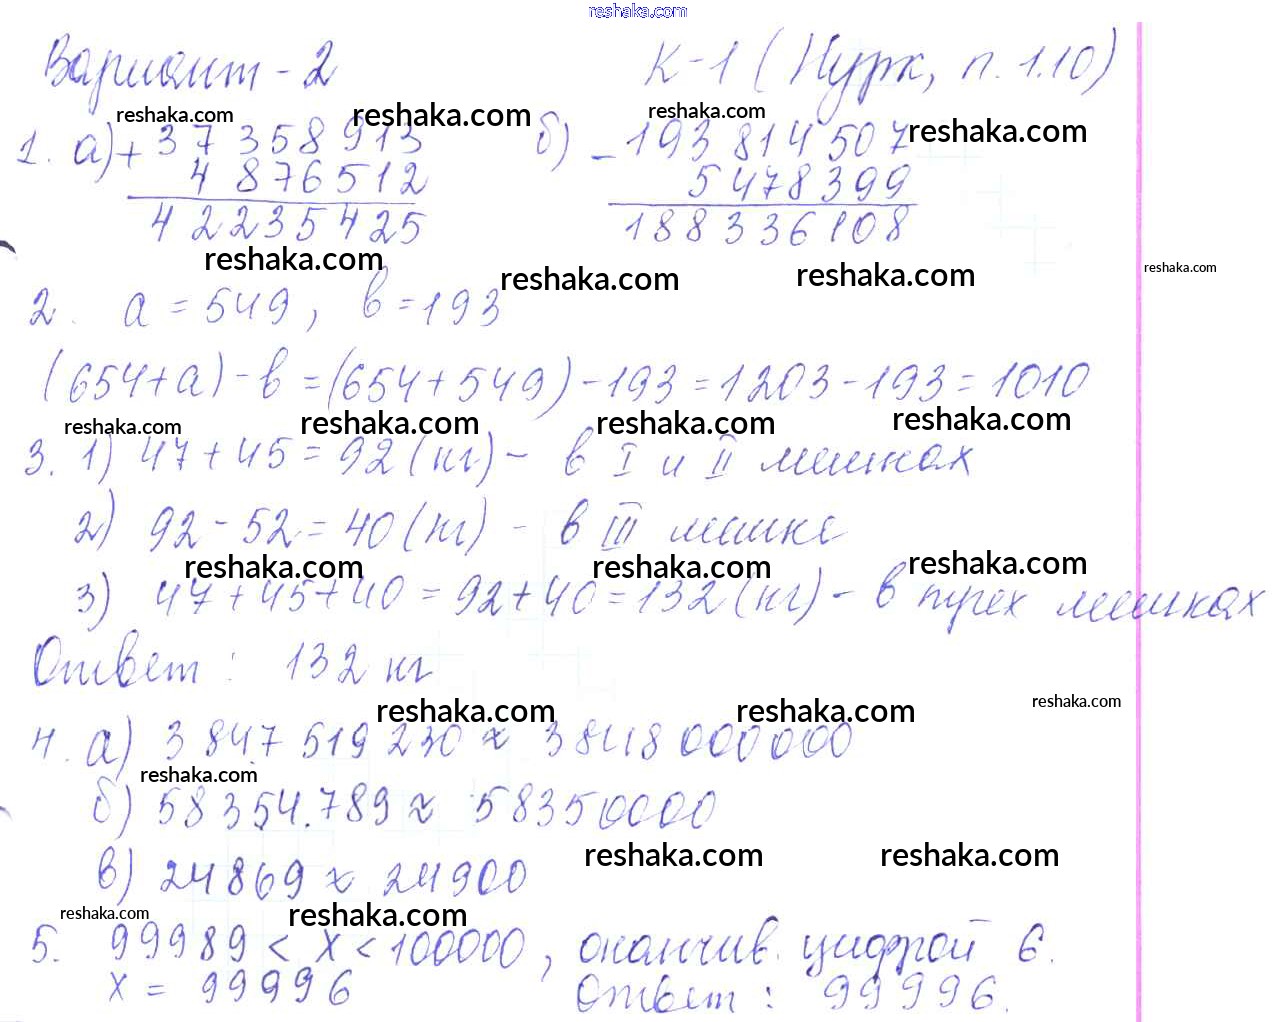 reshaka.com
Вариант - 2 К-1 (Нурк, п. 1.10)
reshaka.com reshaka.com reshaka.com reshaka.com
1. а) + 37 358 913 б) - 193 814 507
4 876 512 5 478 399
42 235 425 188 336 108
reshaka.com reshaka.com reshaka.com reshaka.com
2. а = 549, в = 193
(654 + а) - в = (654 + 549) - 193 = 1203 - 193 = 1010
reshaka.com reshaka.com reshaka.com reshaka.com
3. 1) 47 + 45 = 92 (кг) - в I и II мешках
2) 92 - 52 = 40 (кг) - в III мешке
reshaka.com reshaka.com reshaka.com
3) 47 + 45 + 40 = 92 + 40 = 132 (кг) - в трех мешках
Ответ: 132 кг
reshaka.com reshaka.com reshaka.com
4. а) 3 847 519 230 ≈ 3 848 000 000
reshaka.com
б) 58 354.789 ≈ 58350000
reshaka.com reshaka.com
в) 24 869 ≈ 24 900
reshaka.com reshaka.com
5. 99989 < x < 100000, оканчив. цифрой 6.
x = 99996 Ответ: 99996.